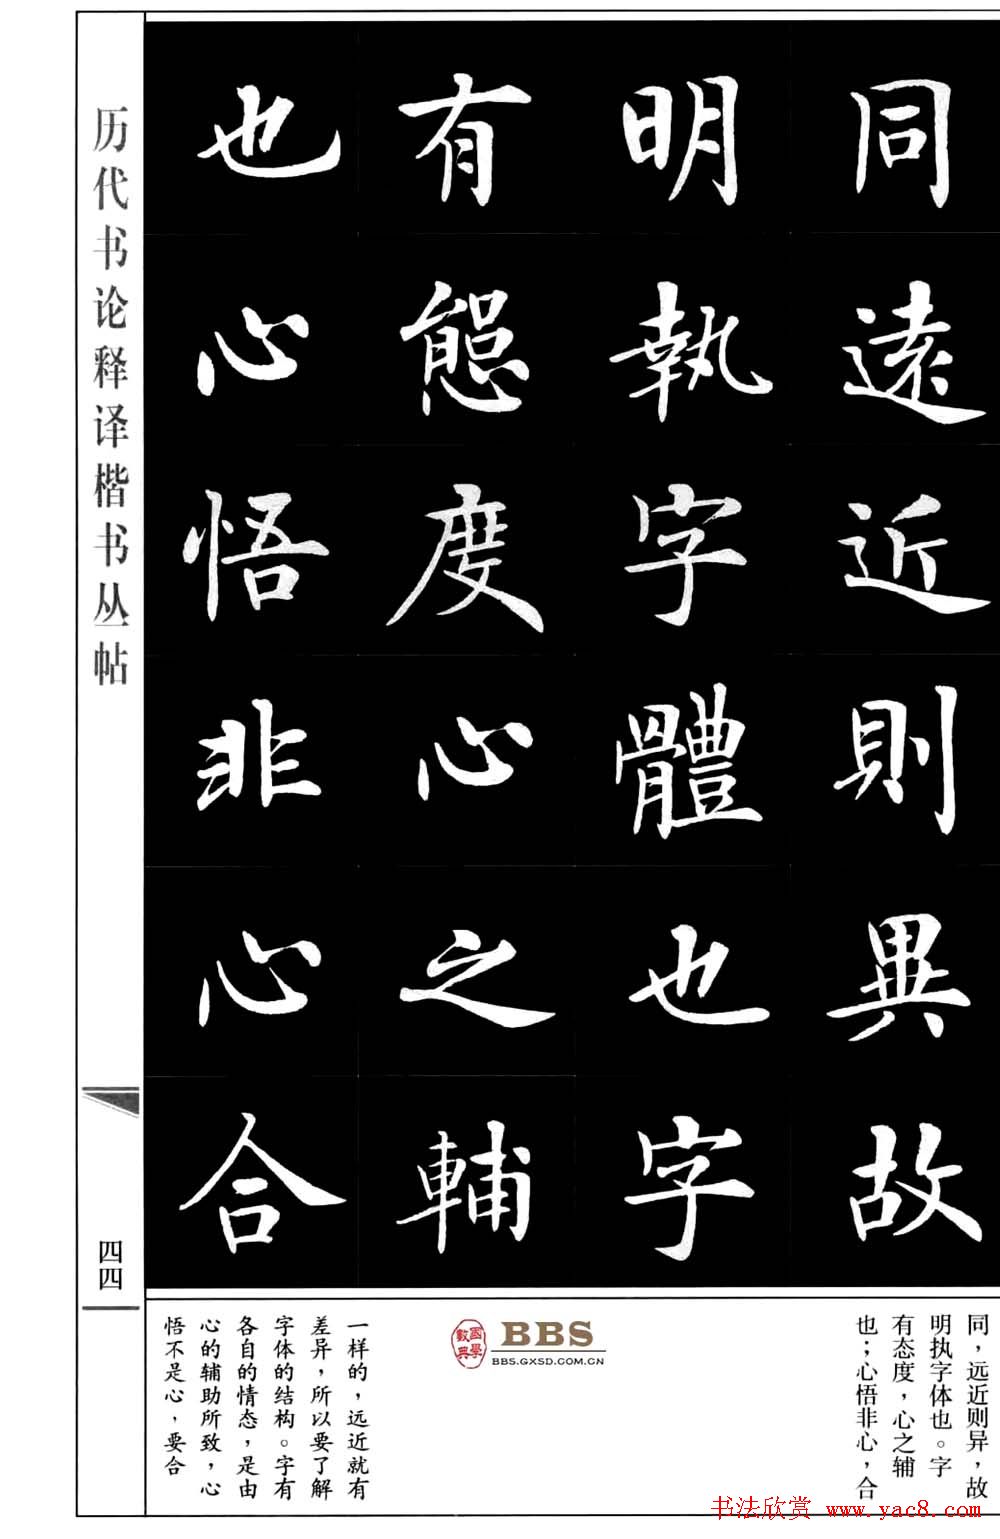 同遠近則異故
明執字體也字
有態度心之輔
也心悟非心合
历代书论释译楷书丛帖
四四
同，远近则异，故
明执字体也。字
有态度，心之辅
也；心悟非心，合
國學數典
BBS
BBS.GXSD.COM.CN
一样的，远近就有
差异，所以要了解
字体的结构。字有
各自的情态，是由
心的辅助所致，心
悟不是心，要合
书法欣赏 www.yac8.com